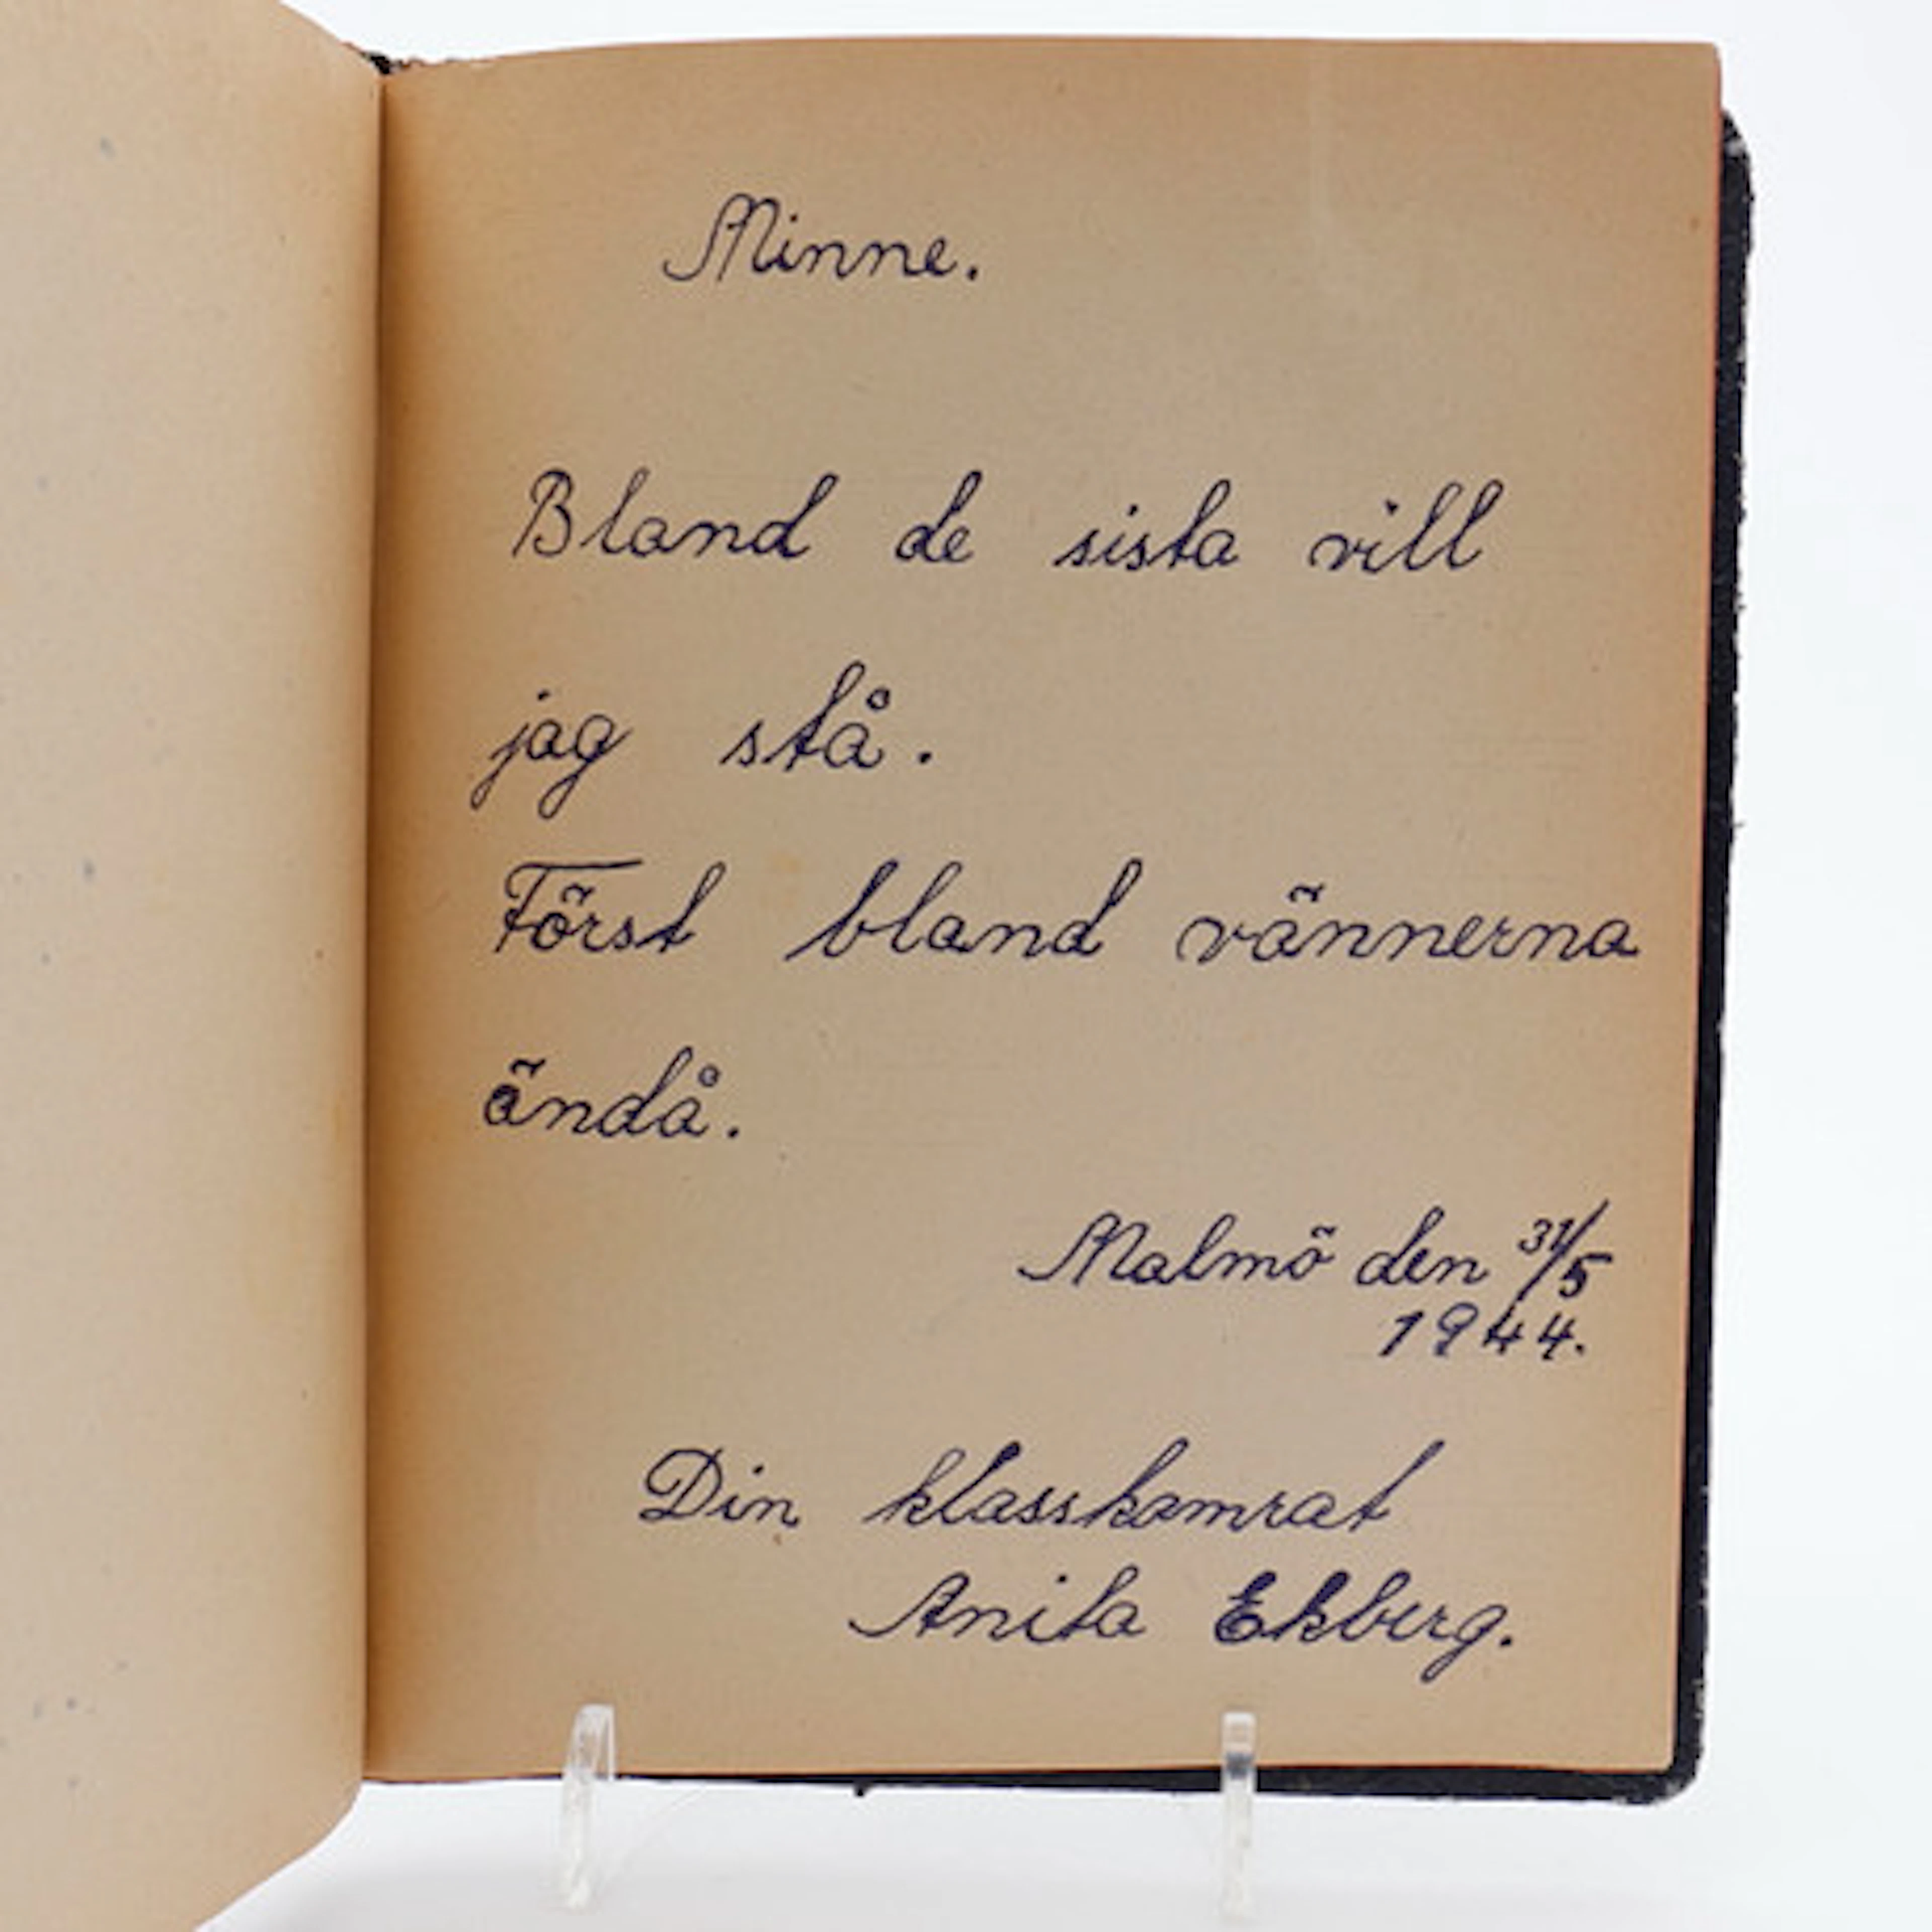 Minne.
Bland de sista vill
jag stå.
Först bland vännerna
ändå.
Malmö den 31/5
1944.
Din klasskamrat
Anita Ekberg.